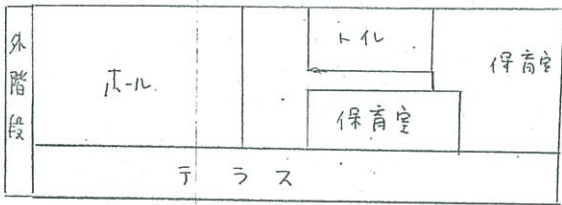 外階段
ホール
トイレ
保育室
保育室
テラス